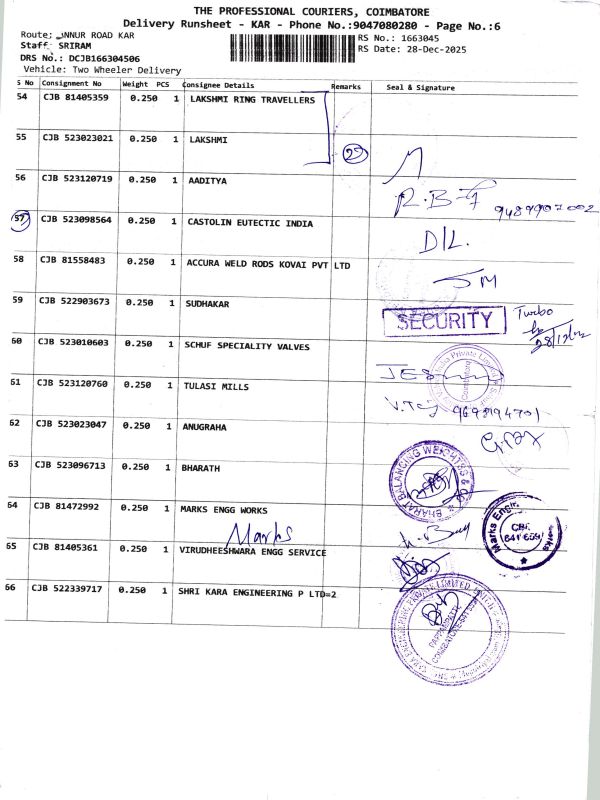 THE PROFESSIONAL COURIERS, COIMBATORE
Delivery Runsheet - KAR - Phone No.:9047080280 - Page No.:6
Route: ANNUR ROAD KAR
RS No.: 1663045
Staff: SRIRAM
RS Date: 28-Dec-2025
DRS No.: DCJB166304506
Vehicle: Two Wheeler Delivery
S No Consignment No Weight PCS Consignee Details Remarks Seal & Signature
54 CJB 81405359 0.250 1 LAKSHMI RING TRAVELLERS
55 CJB 523023021 0.250 1 LAKSHMI
56 CJB 523120719 0.250 1 AADITYA
57 CJB 523098564 0.250 1 CASTOLIN EUTECTIC INDIA
DIL.
58 CJB 81558483 0.250 1 ACCURA WELD RODS KOVAI PVT LTD
JM
59 CJB 522903673 0.250 1 SUDHAKAR
SECURITY
60 CJB 523010603 0.250 1 SCHUF SPECIALITY VALVES
61 CJB 523120760 0.250 1 TULASI MILLS
62 CJB 523023047 0.250 1 ANUGRAHA
63 CJB 523096713 0.250 1 BHARATH
BHARAT BALANCING WEIGHTSS & CO
64 CJB 81472992 0.250 1 MARKS ENGG WORKS
Marks
Marks Engg. Works
CBE
641 659
65 CJB 81405361 0.250 1 VIRUDHEESHWARA ENGG SERVICE
66 CJB 522339717 0.250 1 SHRI KARA ENGINEERING P LTD=2